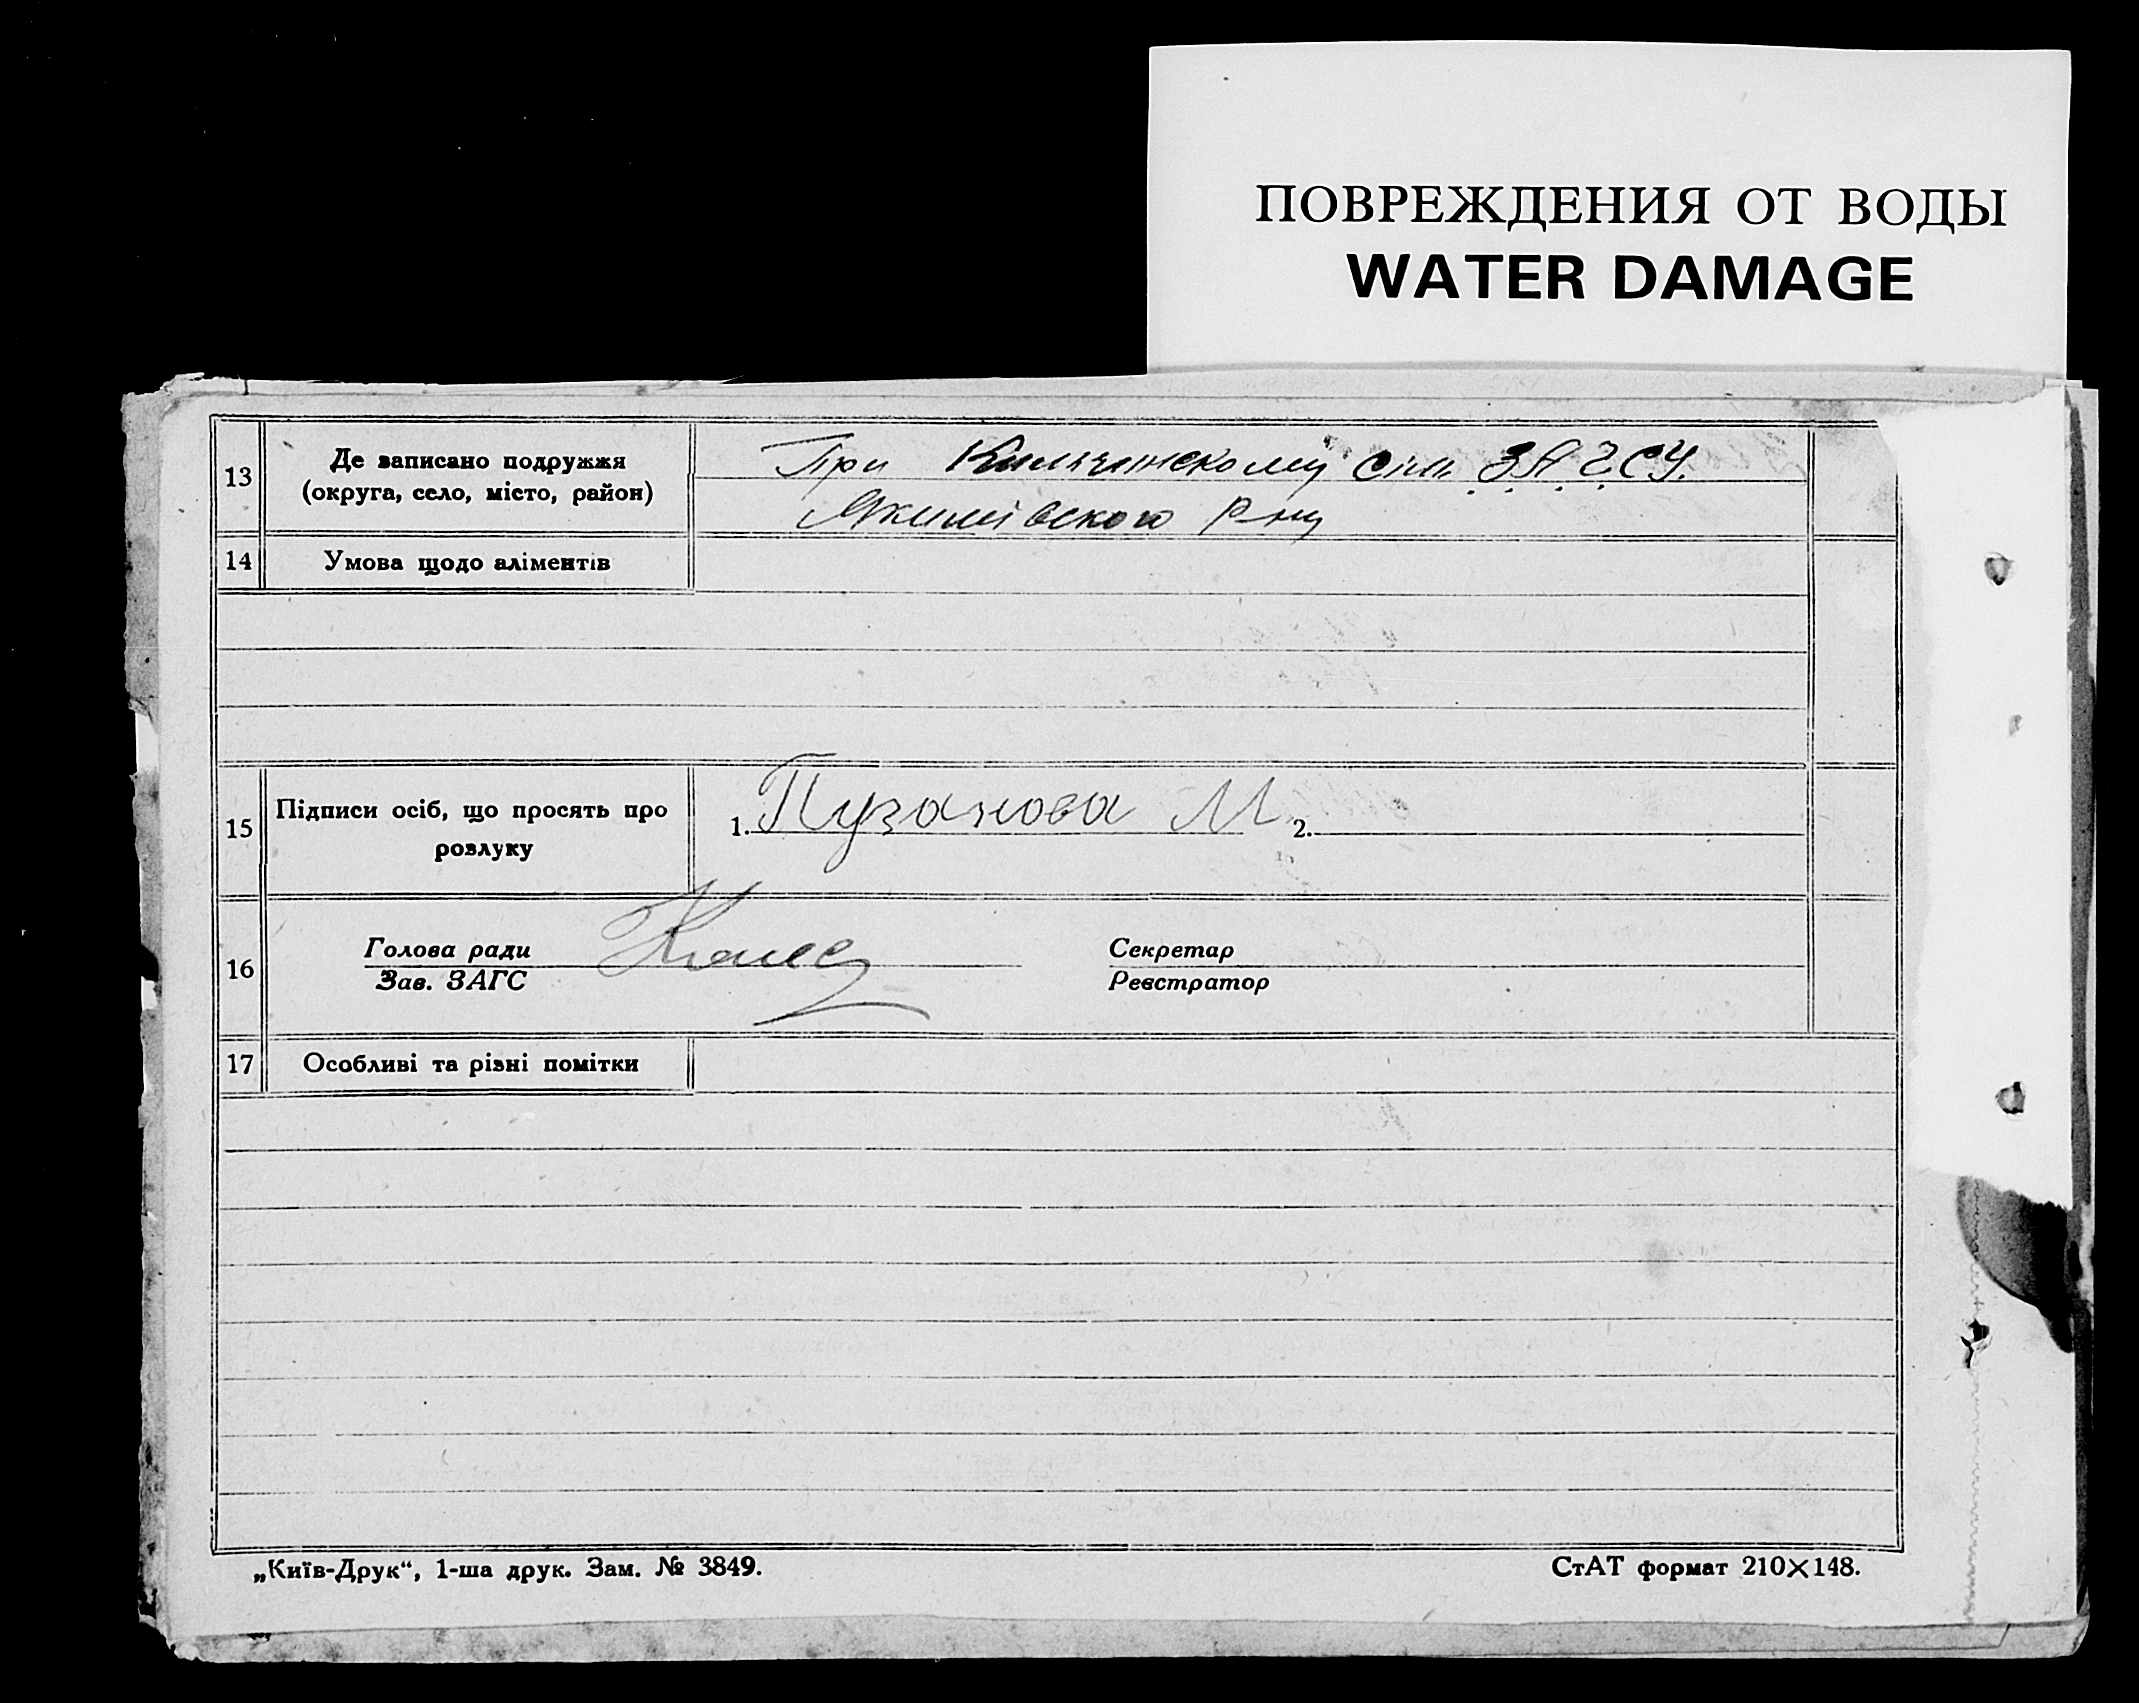 ПОВРЕЖДЕНИЯ ОТ ВОДЫ
WATER DAMAGE
13
Де записано подружжя
(округа, село, місто, район)
При сіль. З.А.Г.СУ.
Якимівского Р-ну
14 Умова щодо аліментів
15
Підписи осіб, що просять про
розлуку
1. Пузанова М 2.
16
Голова ради Секретар
Зав. ЗАГС Реєстратор
17 Особливі та різні помітки
„Київ-Друк“, 1-ша друк. Зам. № 3849. СтАТ формат 210×148.